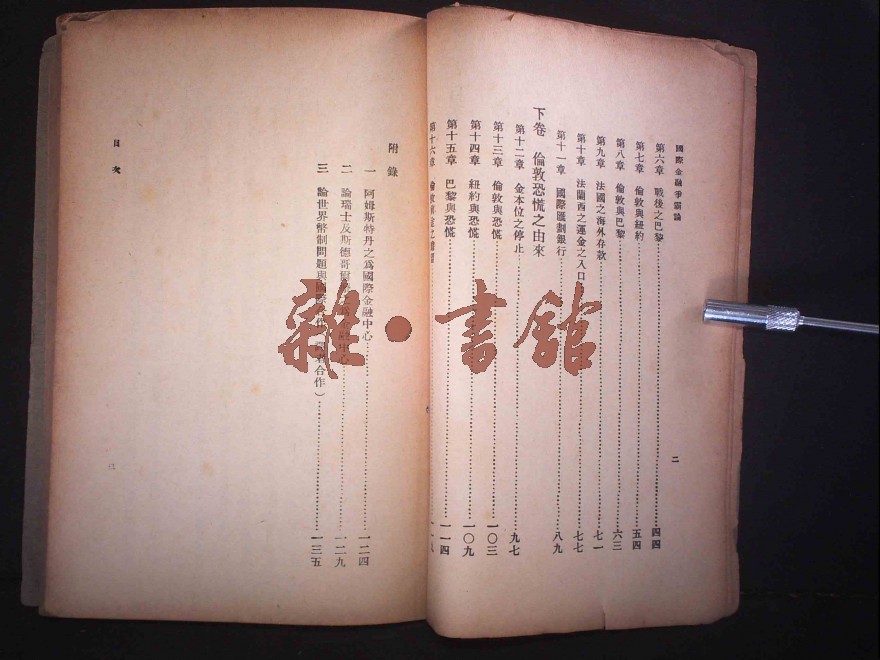 國際金融爭霸論
二
第六章 戰後之巴黎 四四
第七章 倫敦與紐約 五四
第八章 倫敦與巴黎 六三
第九章 法國之海外存款 七一
第十章 法蘭西之運金之入口 七七
第十一章 國際匯劃銀行 八九
下卷 倫敦恐慌之由來
第十二章 金本位之停止 九七
第十三章 倫敦與恐慌 一〇三
第十四章 紐約與恐慌 一〇九
第十五章 巴黎與恐慌 一一四
第十六章 倫敦
附錄
一 阿姆斯特丹之爲國際金融中心 一二四
二 論瑞士及斯德哥爾 金融中心 一二九
三 論世界幣制問題與國際 合作） 一三五
目次
雜·書館